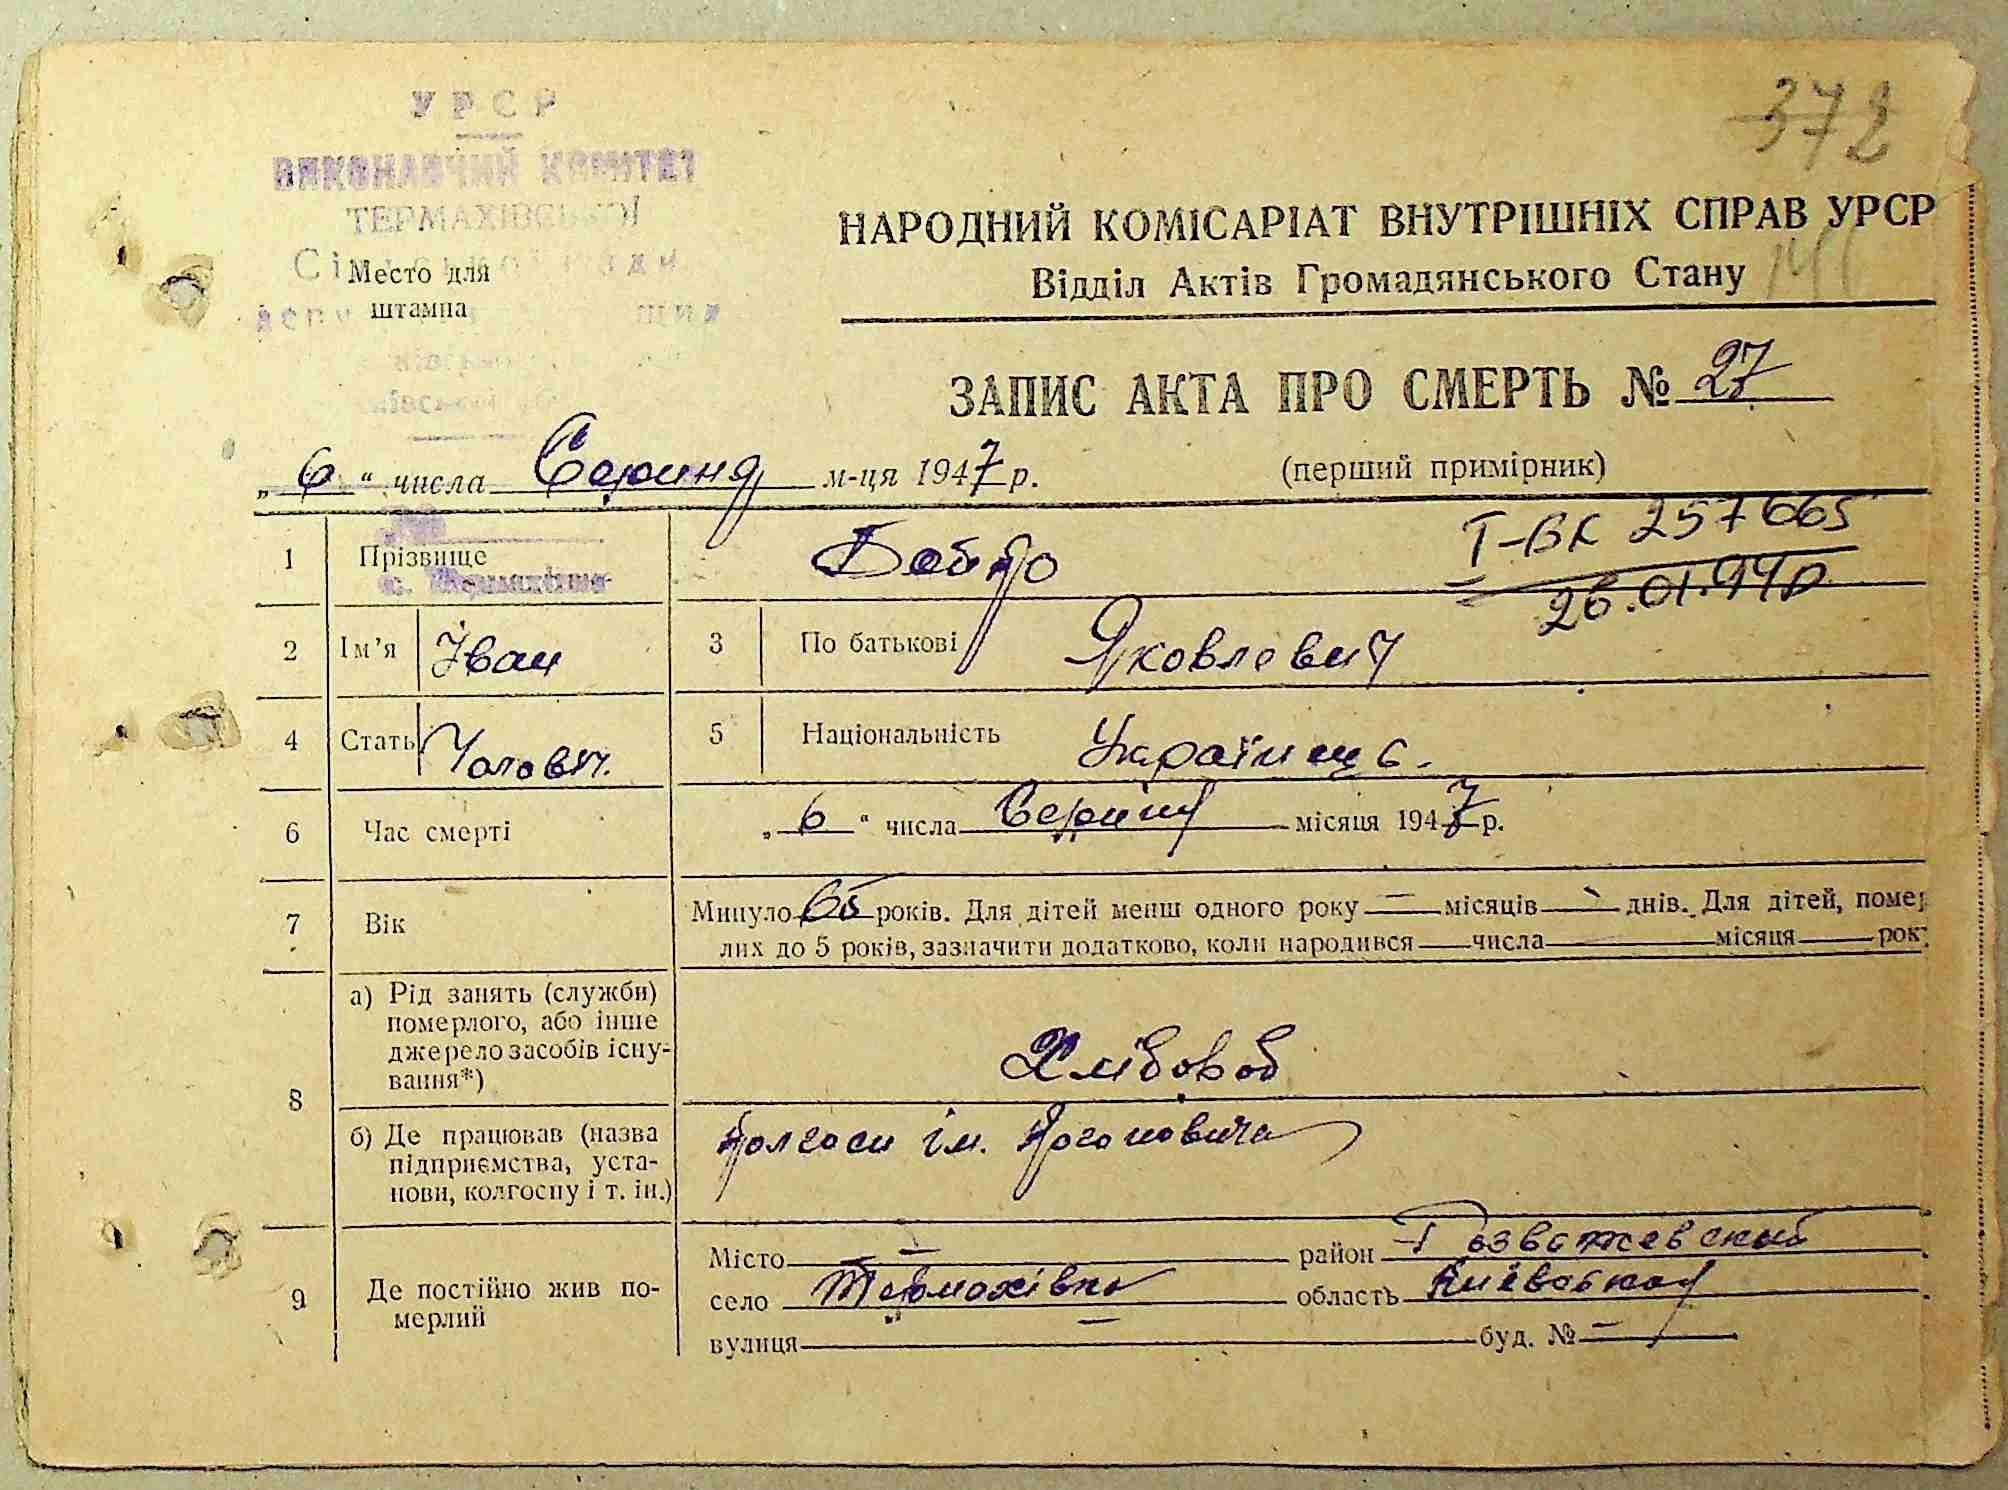 УРСР
ВИКОНАВЧИЙ КОМІТЕТ
ТЕРМАХІВСЬКОЇ
Место для
штампа
372
НАРОДНИЙ КОМІСАРІАТ ВНУТРІШНІХ СПРАВ УРСР
Відділ Актів Громадянського Стану
ЗАПИС АКТА ПРО СМЕРТЬ № 27
„ 6 “ числа Серпня м-ця 1947 р. (перший примірник)
1 Прізвище
I-БК 257665
26.01.94р
2 Ім’я Іван 3 По батькові Яковлевич
4 Стать Чоловіч. 5 Національність Українець.
6 Час смерті „ 6 “ числа Серпня місяця 1947 р.
7 Вік Минуло 65 років. Для дітей менш одного року — місяців — днів. Для дітей, помер
лих до 5 років, зазначити додатково, коли народився — числа — місяця — рок
8 а) Рід занять (служби)
померлого, або інше
джерело засобів існу-
вання*)
Хлібороб
б) Де працював (назва
підприємства, уста-
нови, колгоспу і т. ін.)
Колгосп ім. Кагановича
9 Де постійно жив по-
мерлий
Місто — район Розважевский
село Термахівка область Київська
вулиця — буд. № —